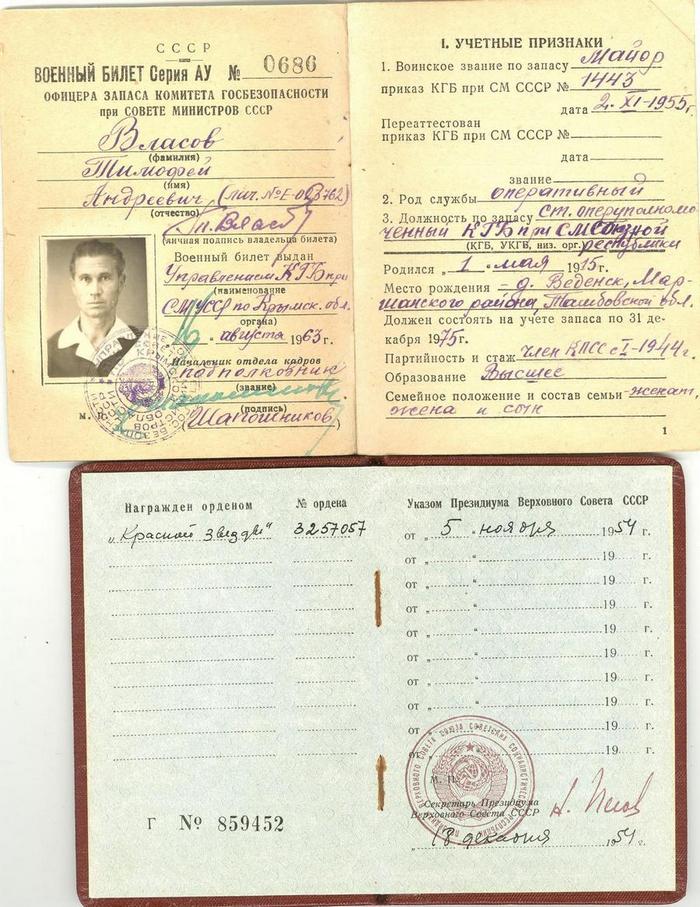 СССР
ВОЕННЫЙ БИЛЕТ Серия АУ № 0686
ОФИЦЕРА ЗАПАСА КОМИТЕТА ГОСБЕЗОПАСНОСТИ
при СОВЕТЕ МИНИСТРОВ СССР
Власов
(фамилия)
Тимофей
(имя)
Андреевич, (лич. № Е-003762)
(отчество)
(личная подпись владельца билета)
Военный билет выдан
Управлением КГБ при
(наименование
СМ УССР по Крымск. обл.
органа)
16 августа 1963 г.
Начальник отдела кадров
подполковник
(звание)
(подпись)
(Шапошников)
I. УЧЕТНЫЕ ПРИЗНАКИ
1. Воинское звание по запасу Майор
приказ КГБ при СМ СССР № 1443
дата 2. XI-1955 г.
Переаттестован
приказ КГБ при СМ СССР №
дата
звание
2. Род службы оперативный
3. Должность по запасу ст. оперуполномо-
ченный КГБ при СМ Союзной
(КГБ, УКГБ, низ. орг.) республики
Родился „1" мая 1915 г.
Место рождения – д. Веденск, Мар-
шанского района, Тамбовской обл.
Должен состоять на учете запаса по 31 де-
кабря 1975 г.
Партийность и стаж член КПСС с I-1944 г.
Образование Высшее
Семейное положение и состав семьи женат,
жена и сын
1
Награжден орденом № ордена
„Красной Звезды" 3257057
Г № 859452
Указом Президиума Верховного Совета СССР
от „5" ноября 1954 г.
от „ " 19 г.
от „ " 19 г.
от „ " 19 г.
от „ " 19 г.
от „ " 19 г.
от „ " 19 г.
от „ " 19 г.
от „ " 19 г.
от „ " 19 г.
М. П.
Секретарь Президиума
Верховного Совета СССР
„18" декабря 1954 г.